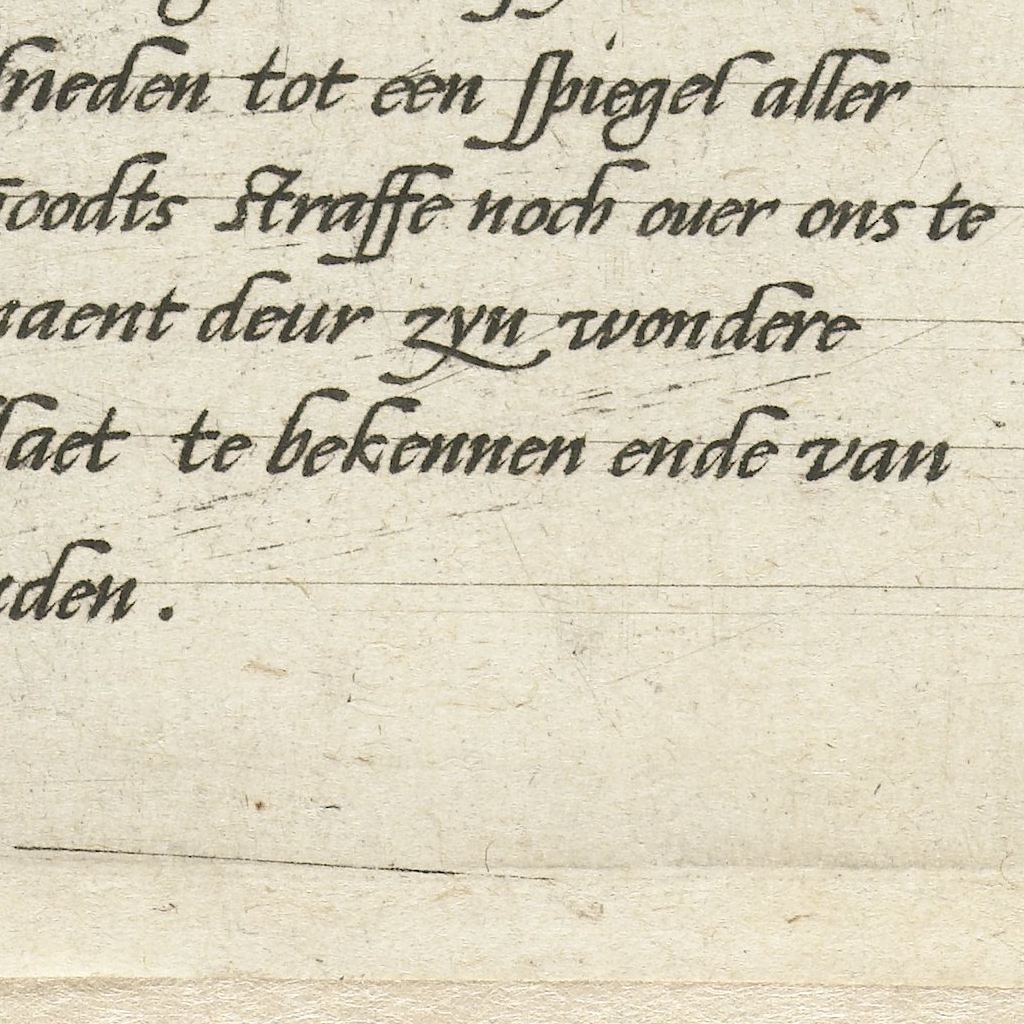 neden tot een spiegel aller
Goodts straffe noch ouer ons te
maent deur zyn wondere
laet te bekennen ende van
den.